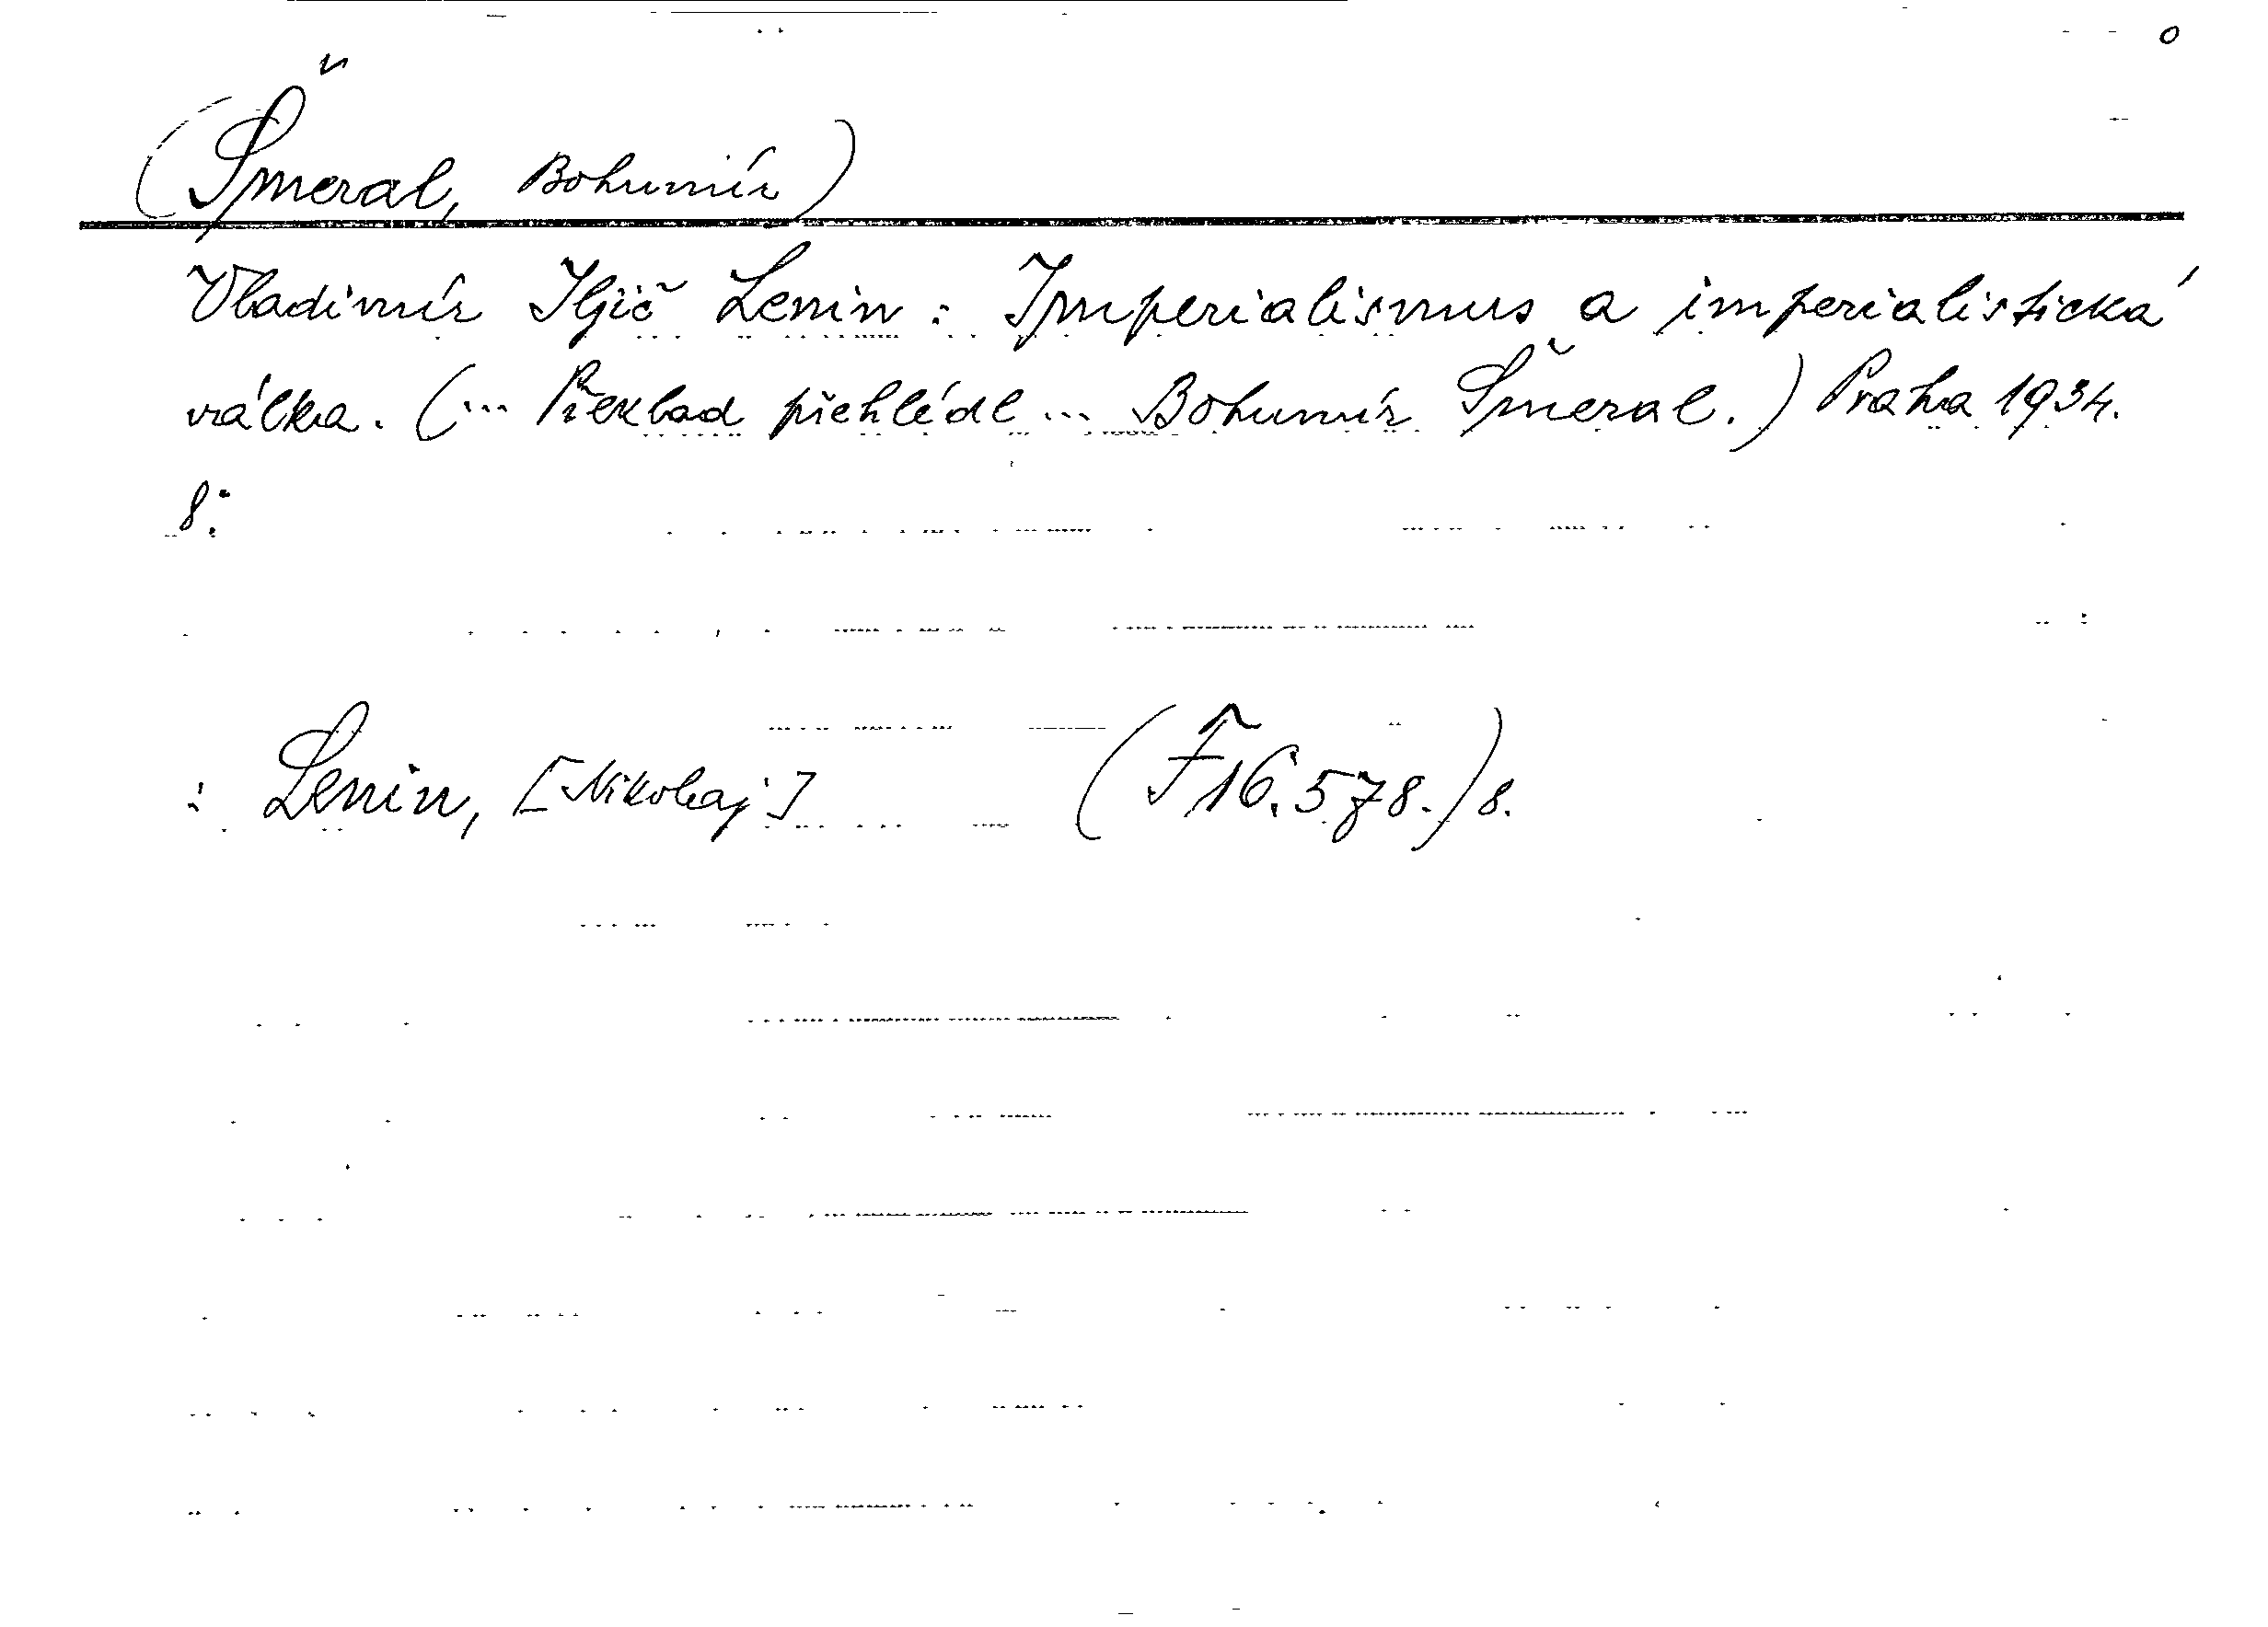 (Šmeral, Bohumír)
Vladimír Iljič Lenin: Imperialismus a imperialistická
válka. (... Překlad přehlédl ... Bohumír Šmeral.) Praha 1934.
8°.
: Lenin, [Nikolaj] (F 16.578.) 8.